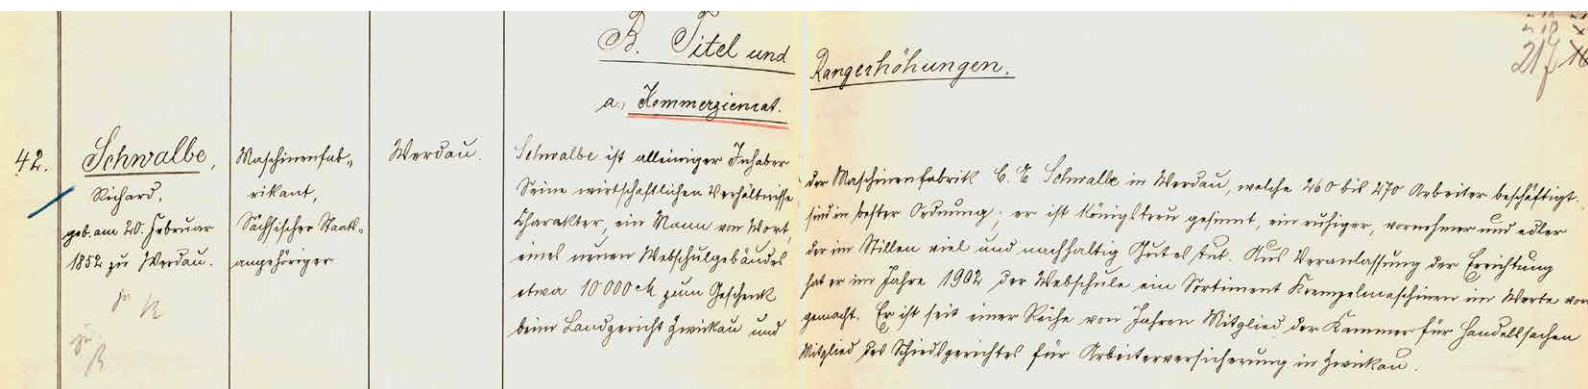 B. Titel und Rangerhöhungen.
217
a., Kommerzienrat.
42.
Schwalbe,
Richard,
geb. am 20. Februar
1852 zu Werdau.
Maschinenfab-
rikant,
Sächsischer Staats-
angehöriger
Werdau.
Schwalbe ist alleiniger Inhaber der Maschinenfabrik C. E. Schwalbe in Werdau, welche 260 bis 270 Arbeiter beschäftigt.
Seine wirtschaftlichen Verhältnisse sind in bester Ordnung; er ist königstreu gesinnt, ein ruhiger, vornehmer und edler
Charakter, ein Mann von Wort, der im Stillen viel und nachhaltig Gutes tut. Aus Veranlassung der Errichtung
eines neuen Webschulgebäudes hat er im Jahre 1902 der Webschule ein Sortiment Krempelmaschinen im Werte von
etwa 10000 M zum Geschenk gemacht. Er ist seit einer Reihe von Jahren Mitglied der Kammer für Handelssachen
beim Landgericht Zwickau und Mitglied des Schiedsgerichtes für Arbeiterversicherung in Zwickau.